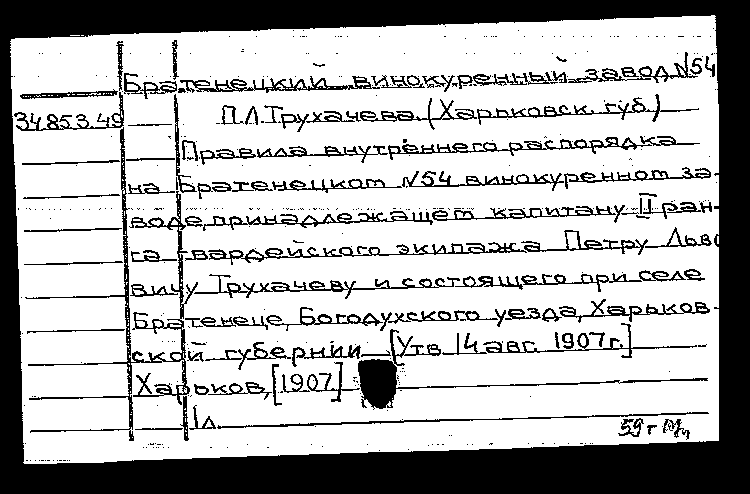 Братенецкий винокуренный завод №54
34853.49 П.Л.Трухачева. (Харьковск. губ.)
Правила внутреннего распорядка
на Братенецком №54 винокуренном за-
воде, принадлежащем капитану II ран-
га гвардейского экипажа Петру Льво
вичу Трухачеву и состоящего при селе
Братенеце, Богодухского уезда, Харьков-
ской губернии [Утв 14 авг. 1907г.]
Харьков, [1907]
1л.
59г